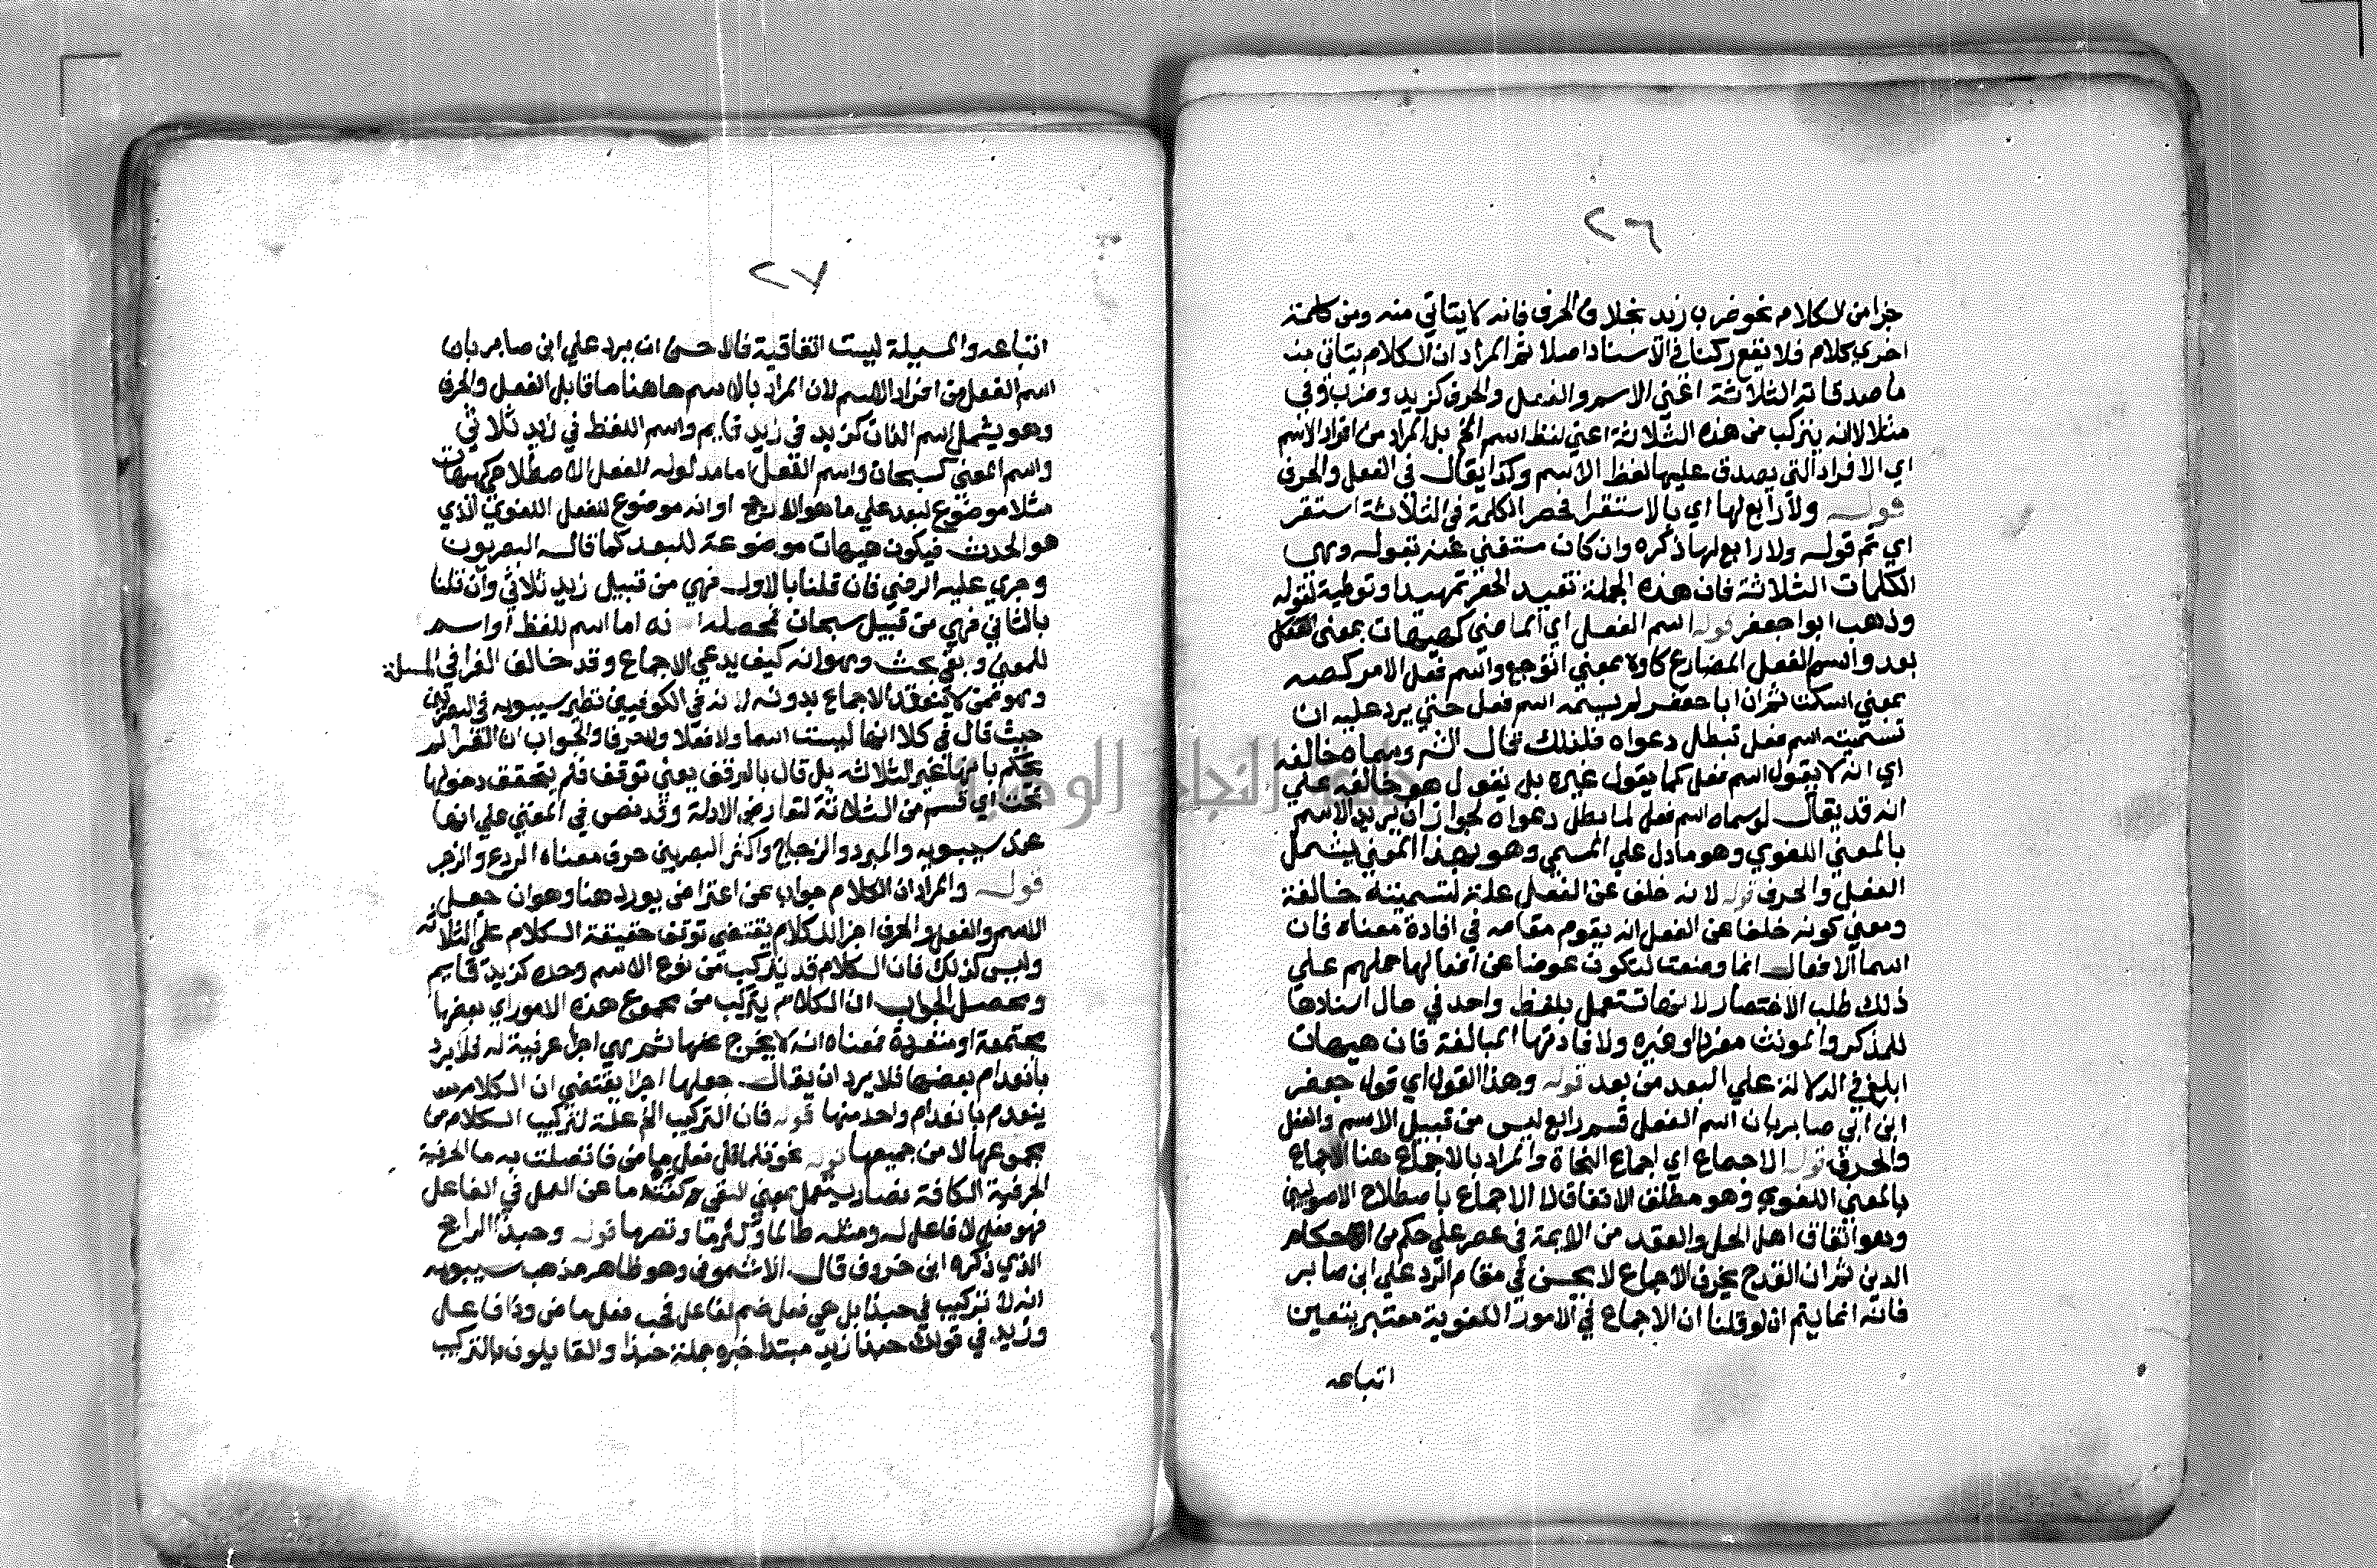 ٢٦
جزا من الكلام نحو ضرب زيد بخلاف الحرف فانه لا يتاتي منه ومن كلمة
اخري كلام فلا يقع ركنا في الاسناد اصلا ثم المراد ان الكلام يتاتي منه
ما صدقاته الثلاثة اعني الاسم والفعل والحرف كزيد وضرب وفي
مثلا لا انه يتركب من هذه الثلاثة اعني لفظ اسم الخ بل المراد من افراد الاسم
اي الافراد التي يصدق عليها لفظ الاسم وكذا يقال في الفعل والحرف
قوله ولا رابع لها اي بالاستقرا فحصر الكلمة في الثلاثة استقر
اي ثم قوله ولا رابع لها ذكره وان كان مستغني عنه بقوله وهي
الكلمات الثلاثة فان هذه الجملة تفيد الحصر تمهيدا وتوطية لقوله
وذهب ابوا جعفر قوله اسم الفعل اي الماضي كهيهات بمعني الفعل
بعد واسم الفعل المضارع كاوه بمعني اتوجع واسم فعل الامر كصه
بمعني اسكت ثم ان ابا جعفر لم يسمه اسم فعل حتي يرد عليه ان
تسميته اسم فعل تبطل دعواه فلذلك قال الش وسماه خالفه
اي انه لا يقول اسم فعل كما يقول غيره بل يقول هو خالفه علي
انه قد يقال لو سماه اسم فعل لما بطل دعواه لجواز ان يريد الاسم
بالمعني اللغوي وهو ما دل علي المسمي وهو بهذا المعني يشمل
الفعل والحرف قوله لانه خلف عن الفعل علة لتسميته خالفة
ومعني كونه خلفا عن الفعل انه يقوم مقامه في افادة معناه فان
اسما الافعال انما وضعت لتكون عوضا عن افعالها حملهم علي
ذلك طلب الاختصار لانها تستعمل بلفظ واحد في حال اسنادها
للمذكر والمونث مفردا وغيره ولافادتها المبالغة فان هيهات
ابلغ في الدلالة علي البعد من بعد قوله وهذا القول اي قول جعفر
ابن ابي صابر بان اسم الفعل قسم رابع ليس من قبيل الاسم والفعل
والحرف قوله الاجماع اي اجماع النحاة والمراد بالاجماع هنا الاجماع
بالمعني اللغوي وهو مطلق الاتفاق لا الاجماع باصطلاح الاصوليين
وهو اتفاق اهل الحل والعقد من الايمة في عصر علي حكم من الاحكام
الدين ثم ان القدح بخرق الاجماع لا يحسن في مقام الرد علي ابن صابر
فانه انما يتم ان لو قلنا ان الاجماع في الامور اللغوية معتبر يتعين
اتباعه
٢٧
اتباعه والمسيلة ليست اتفاقية فالاحسن ان يرد علي ابن صابر بان
اسم الفعل من افراد الاسم لان المراد بالاسم هاهنا ما قابل الفعل والحرف
وهو يشمل اسم الذات كزيد في زيد قايم واسم اللفظ في زيد ثلاثي
واسم المعني كسبحان واسم الفعل اما مدلوله الفعل الاصطلاحي كهيهات
مثلا موضوع لبعد علي ما هو الارجح او انه موضوع للفعل اللغوي الذي
هو الحدث فيكون هيهات موضوعة للبعد كما قاله البصريون
وجري عليه الرضي فان قلنا بالاول فهي من قبيل زيد ثلاثي وان قلنا
بالثاني فهي من قبيل سبحان فحصله انه اما اسم للفظ او اسم
للمعني وبقي بحث وهو انه كيف يدعي الاجماع وقد خالف الفرا في المسلة
وهو ممن لا ينعقد الاجماع بدونه لانه في الكوفيين نظير سيبويه في البصريين
حيث قال في كلا انها ليست اسما ولا فعلا ولا حرفا والجواب ان الفرا لم
يحكم بانها غير الثلاثه بل قال بالوقف يعني توقف فلم يتحقق دخولها
تحت اي قسم من الثلاثة لتعارض الادلة وقد نص في المعني علي انها
عند سيبويه والمبرد والزجاج واكثر البصريين حرف معناه الردع والزجر
قوله والمراد ان الكلام جواب عن اعتراض يورد هنا وهو ان جعل
الاسم والفعل والحرف اجزا للكلام يقتضي توقف حقيقة الكلام علي الثلاثه
وليس كذلك فان الكلام قد يتركب من نوع الاسم وحده كزيد قايم
ومحصل الجواب ان الكلام يتركب من مجموع هذه الامور اي بعضها
مجتمعة او منفردة فمعناه انه لا يخرج عنها ثم هي اجزا عرفية له فلا يرد
بانعدام بعضها فلا يرد ان يقال جعلها اجزا يقتضي ان الكلام
ينعدم بانعدام واحد منها قوله فان التركيب الخ علة لتركيب الكلام من
مجموعها لا من جميعها قوله نحو قلما قل فعل ماض فاتصلت به ما الحرفية
الحرفية الكافة فصار يستعمل بمعني النفي وكفته ما عن العمل في الفاعل
فهو فعل لا فاعل له ومثله طالما وكثرما وقصرما قوله وحبذا الراجح
الذي ذكره ابن خروف قال الاشموني وهو ظاهر مذهب سيبويه
انه لا تركيب في حبذا بل هي فعل ضم لفاعل فحب فعل ماض وذا فاعل
وزيد في قولك حبذا زيد مبتدا خبره جملة حبذا والقايلون بالتركيب